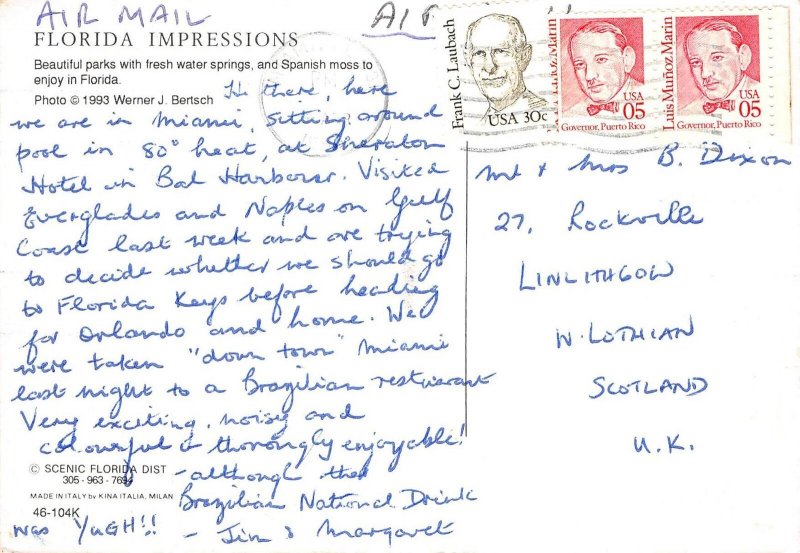 AIR MAIL
FLORIDA IMPRESSIONS
Beautiful parks with fresh water springs, and Spanish moss to
enjoy in Florida.
Photo © 1993 Werner J. Bertsch
Hi there, here
we are in Miami, sitting around
pool in 80° heat, at Sheraton
Hotel in Bal Harbour. Visited
Everglades and Naples on Gulf
Coast last week and are trying
to decide whether we should go
to Florida Keys before heading
for Orlando and home. We
were taken "down town" Miami
last night to a Brazilian restaurant
Very exciting, noisy and
colourful & thorongly enjoyable!
- although the
Brazilian National Drink
was YUGH!! - Jim & Margaret -
© SCENIC FLORIDA DIST
305 - 963 - 7694
MADE IN ITALY by KINA ITALIA, MILAN
46-104K
Frank C. Laubach
USA 30c
Luis Muñoz Marin
USA
05
Governor, Puerto Rico
Luis Muñoz Marin
USA
05
Governor, Puerto Rico
Mr + Mrs B. Dixon
27, Rockville
LINLITHGOW
W. LOTHIAN
SCOTLAND
U.K.